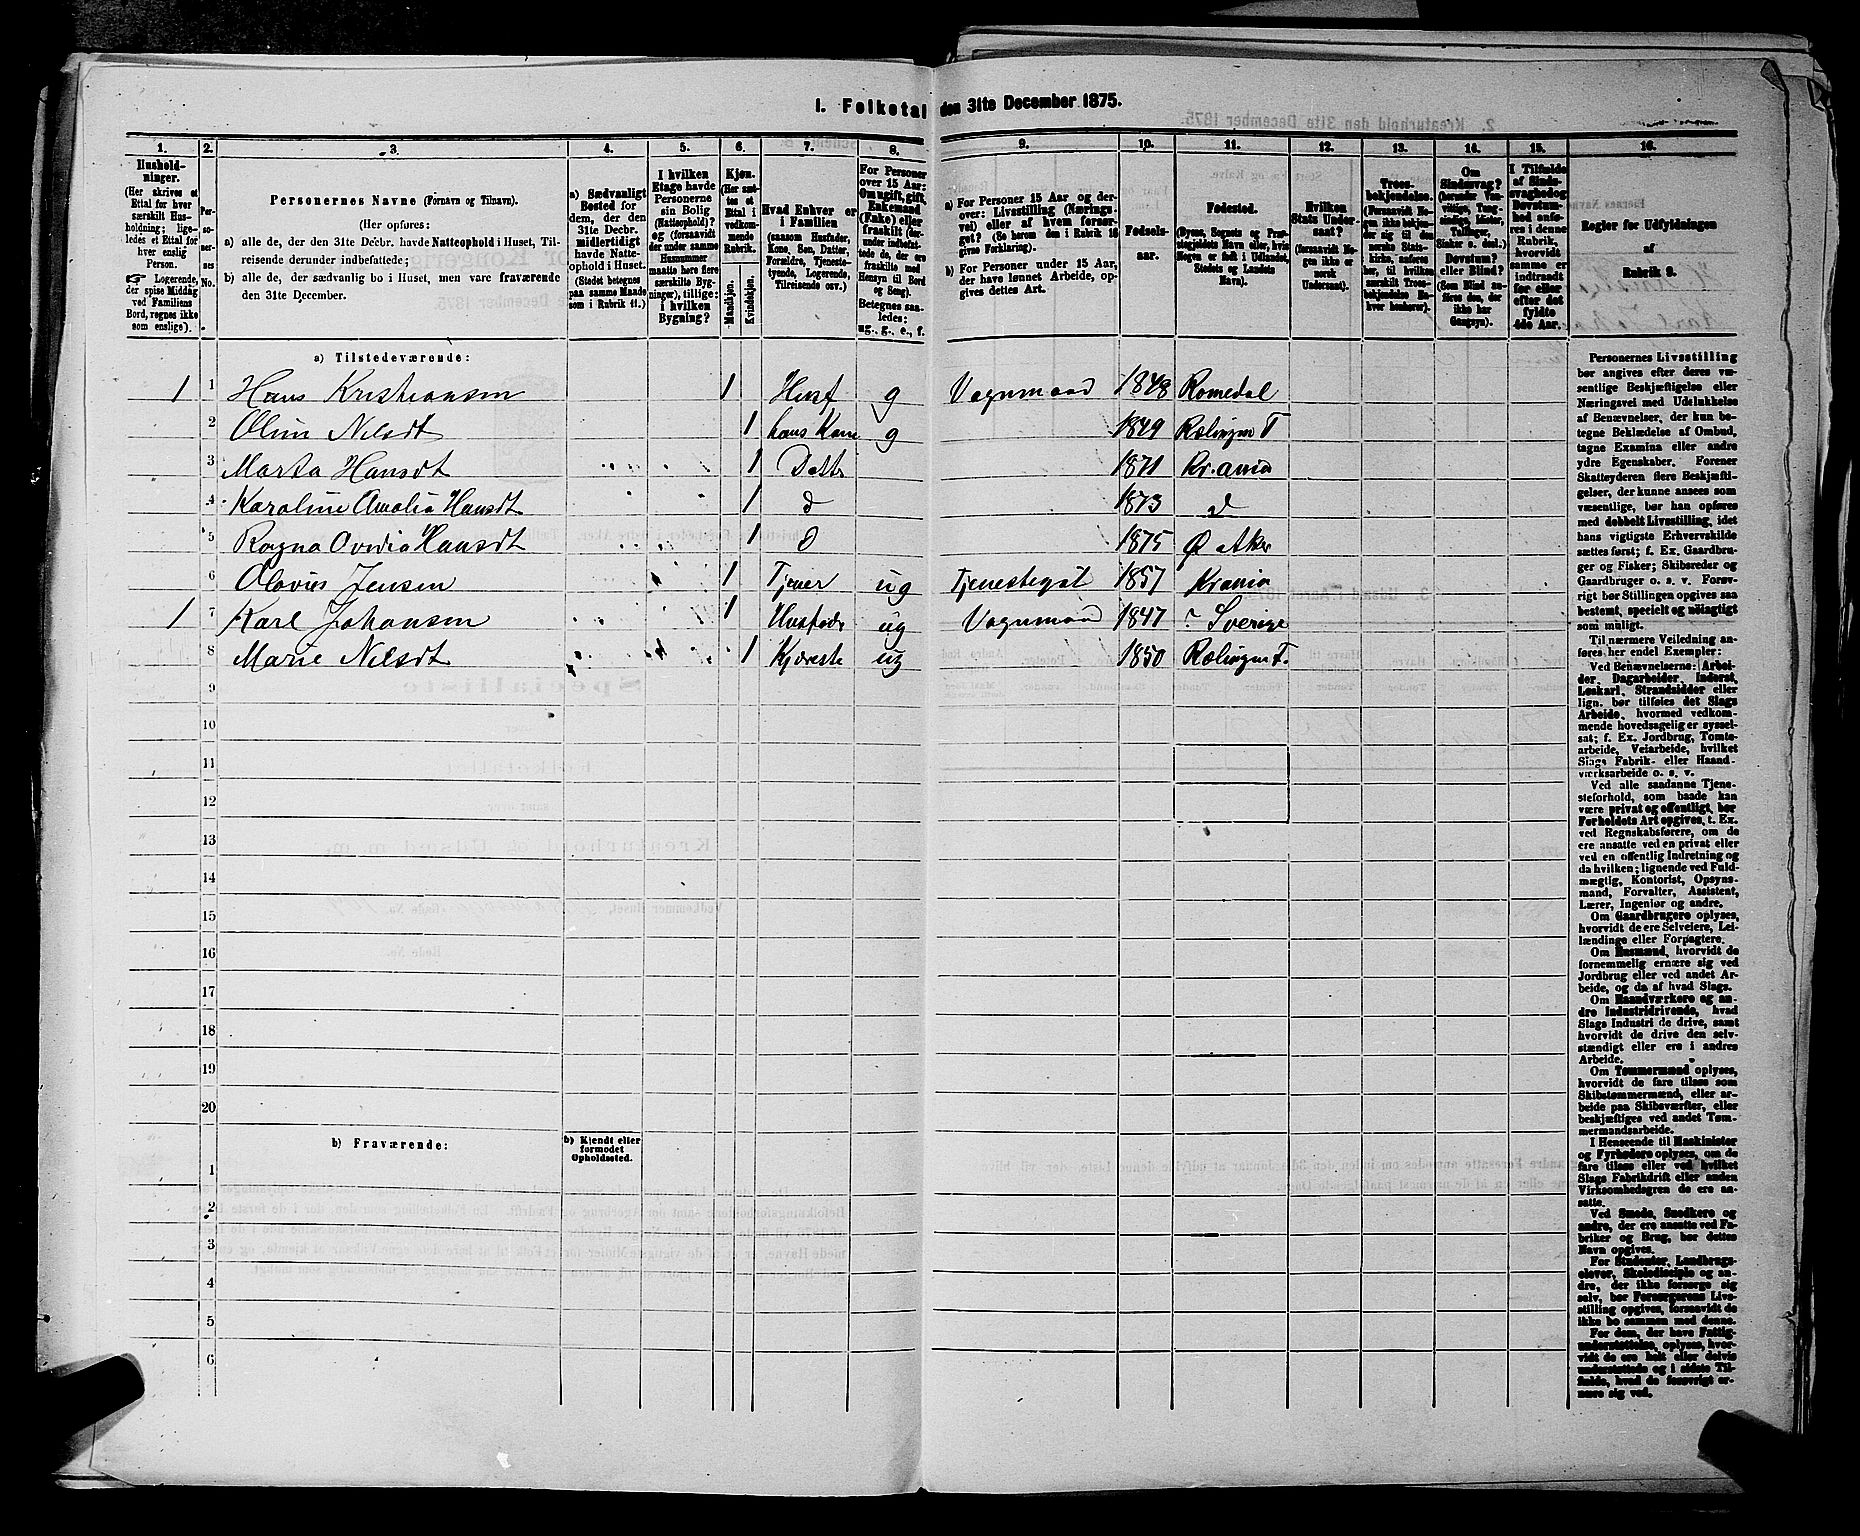 I. Folketal den 31te December 1875.
1. 2. 3. 4. 5. 6. 7. 8. 9. 10. 11. 12. 13. 14. 15. 16.
Husholdninger. (Her skrives et Ettal for hver særskilt Husholdning; ligeledes et Ettal for hver enslig Person. ☞ Logerende, der spise Middag ved Familiens Bord, regnes ikke som enslige).
Personernes No.
Personernes Navne (Fornavn og Tilnavn).
(Her opføres:
a) alle de, der den 31te Decbr. havde Natteophold i Huset, Tilreisende derunder indbefattede;
b) alle de, der sædvanlig bo i Huset, men vare fraværende den 31te December.
a) Sædvanligt Bosted for dem, der den 31te Decbr. midlertidigt havde Natteophold i Huset. (Stedet betegnes paa samme Maade som i Rubrik 11.)
I hvilken Etage havde Personerne sin Bolig (Natteophold)? og (forsaavidt der under samme Husnummer maatte høre flere særskilte Bygninger), tillige: i hvilken Bygning?
Kjøn. (Her sættes et Ettal i vedkommende Rubrik.
Mandkjøn. Kvindekjøn.
Hvad Enhver er i Familien (saasom Husfader, Kone, Søn, Datter, Forældre, Tjenestetyende, Logerende, Tilreisende osv.)
For Personer over 15 Aar: Om ugift, gift, Enkemand (Enke) eller fraskilt (herunder indbefattede de, der ere fraskilte med Hensyn til Bord og Seng). Betegnes saaledes: ug., g., e., f.
a) For Personer 15 Aar og derover: Livsstilling (Næringsvei) eller af hvem forsørget? (Se herom den i Rubrik 16 givne Forklaring).
b) For Personer under 15 Aar, der have lønnet Arbeide, opgives dettes Art.
Fødselsaar.
Fødested. (Byens, Sognets og Præstegjeldets Navn eller, hvis Nogen er født i Udlandet, Stedets og Landets Navn).
Hvilken Stats Undersaat? (forsaavidt Nogen ikke er norsk Undersaat).
Troesbekjendelse.
Om Sindssvag?
Døvstum? eller Blind?
Regler for Udfyldningen af Rubrik 9.
a) Tilstedeværende:
1 1 Hans Kristiansen 1 Husf g Vognmand 1848 Romedal
2 Olin Nilsdt 1 hans Kone g 1849 Rælingen F
3 Marta Hansdt 1 Dattr 1871 Kr.ania
4 Karoline Amalia Hansdt 1 d 1873 d
5 Ragna Ovidia Hansdt 1 d 1875 Ø Aker
6 Olavus Jensen 1 Tjener ug Tjenestegut 1857 Krania
1 7 Karl Johansen 1 Husfadr ug Vognmand 1847 ? Sverige
8 Marie Nilsdt 1 Kjæreste ug 1850 Rælingen F.
9
10
11
12
13
14
15
16
17
18
19
20
b) Fraværende:
b) Kjendt eller formodet Opholdssted.
1
2
3
4
5
6
Personernes Livsstilling
bør angives efter deres væ-
sentlige Beskjæftigelse eller
Næringsvei med Udelukkelse
af Benævnelser, der kun be-
tegne Beklædelse af Ombud,
tagne Examina eller andre
ydre Egenskaber. Forener
Skatteyderen flere Beskjæfti-
gelser, der kunne ansees som
væsentlige, bør han opføres
med dobbelt Livsstilling, idet
hans vigtigste Erhvervskilde
sættes først; f. Ex. Gaardbru-
ger og Fisker; Skibsreder og
Gaardbruger o. s. v. Forøv-
rigt bør Stillingen opgives saa
bestemt, specielt og nøiagtigt
som muligt.
Til nærmere Veiledning an-
føres her endel Exempler:
Ved Benævnelserne: Arbei-
der, Dagarbeider, Inderst,
Løskarl, Strandsidder eller
lign. bør tilføies det Slags
Arbeide, hvormed vedkom-
mende hovedsagelig er syssel-
sat; f. Ex. Jordbrug, Tomte-
arbeide, Veiarbeide, hvilket
Slags Fabrik- eller Haand-
værksarbeide o. s. v.
Ved alle saadanne Tjene-
steforhold, som baade kan
være privat og offentligt, bør
Forholdets Art opgives, t. Ex.
ved Regnskabsførere, om de
ere ansatte ved en privat eller
ved en offentlig Indretning og
da hvilken; lignende ved Fuld-
mægtig, Kontorist, Opsyns-
mand, Forvalter, Assistent,
Lærer, Ingeniør og andre.
Om Gaardbrugere oplyses,
hvorvidt de ere Selveiere, Lei-
lændinge eller Forpagtere.
Om Husmænd, hvorvidt de
fornemmelig ernære sig ved
Jordbrug eller ved andet Ar-
beide, og da af hvad Slags.
Om Haandværkere og an-
dre Industridrivende, hvad
Slags Industri de drive, samt
hvorvidt de drive den selv-
stændigt eller ere i andres
Arbeide.
Om Tømmermænd oplyses,
hvorvidt de fare tilsøs som
Skibstømmermænd, eller ar-
beide paa Skibsværfter, eller
beskjæftiges ved andet Tøm-
mermandsarbeide.
I Henseende til Maskinister
og Fyrbødere oplyses, om de
fare tilsøs eller ved hvilket
Slags Fabrikdrift eller anden
Virksomhedsgren de ere an-
satte.
Ved Smede, Snedkere og
andre, der ere ansatte ved Fa-
briker og Brug, bør dettes
Navn opgives.
For Studenter, Landbrugs-
elever, Skoledisciple og an-
dre, der ikke forsørge sig
selv, bør Forsørgerens Livs-
stilling opgives, forsaavidt de
ikke bo sammen med denne.
For dem, der have Fattig-
understøttelse, oplyses, hvor-
vidt de ere helt eller delvis
understøttede og i sidste Til-
fælde, hvad de forøvrigt er-
nære sig ved.